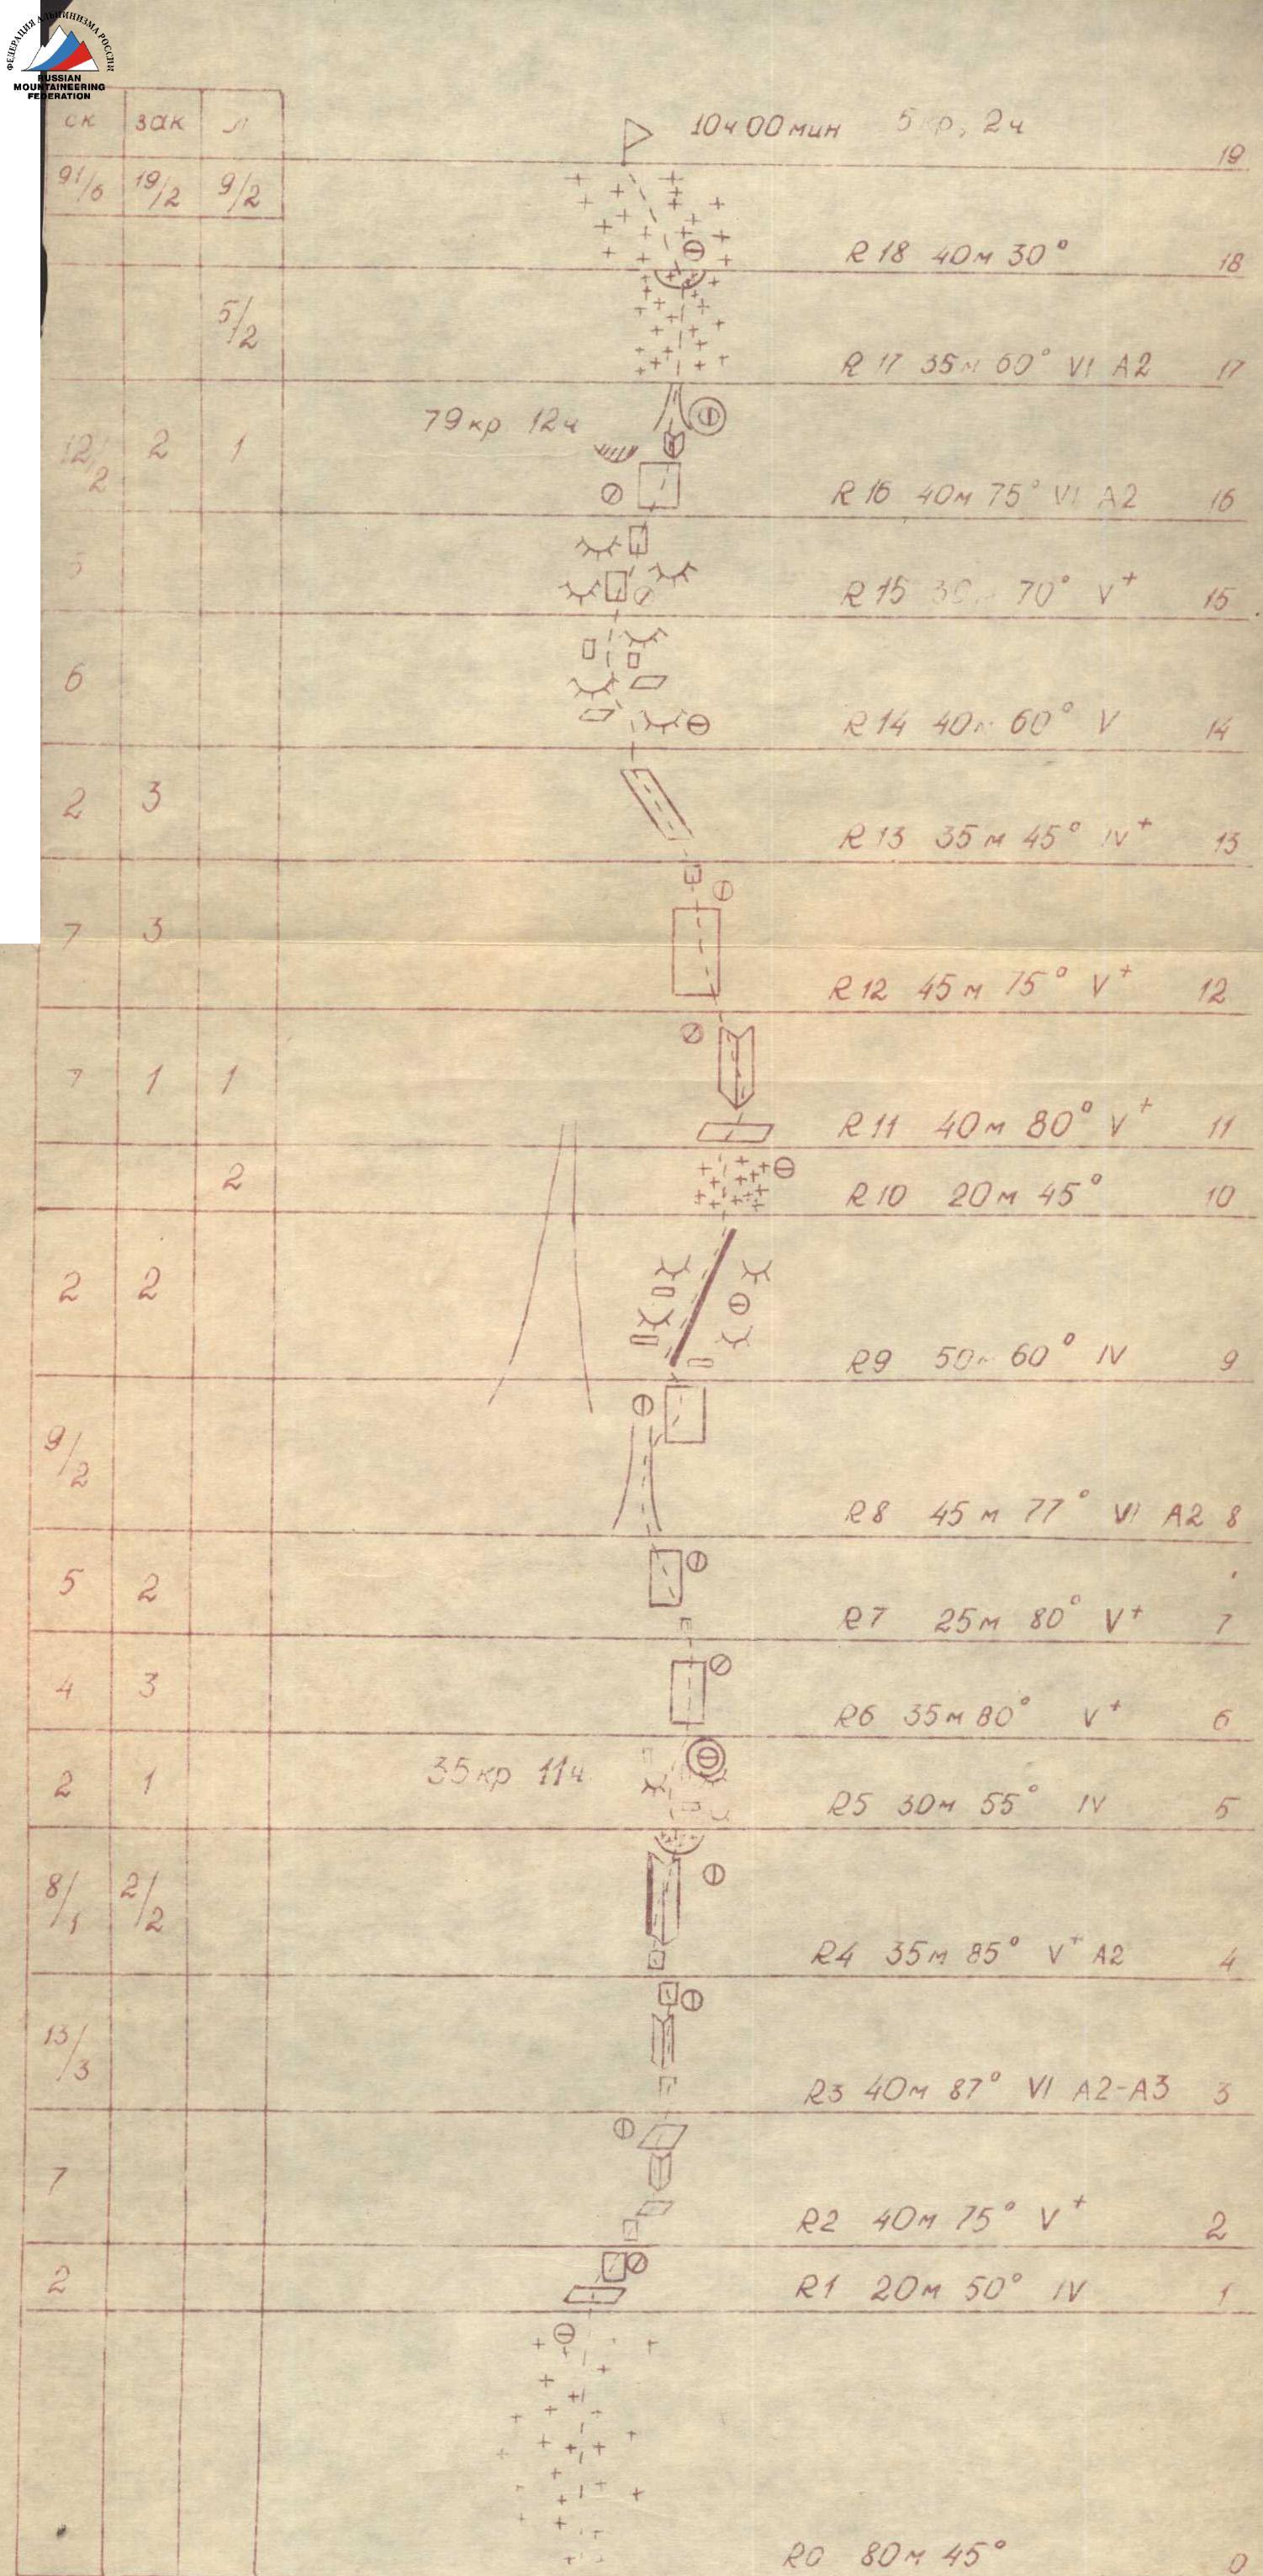 ФЕДЕРАЦИЯ АЛЬПИНИЗМА РОССИИ
RUSSIAN
MOUNTAINEERING
FEDERATION
ск зак л
10ч00мин 5кр, 2ч
19
91/6 19/2 9/2
R18 40м 30° 18
5/2
R17 35м 60° VI A2 17
79кр 12ч
12/2 2 1
R16 40м 75° VI A2 16
R15 70° V+ 15
6
R14 40м 60° V 14
2 3
R13 35м 45° IV+ 13
7 3
R12 45м 75° V+ 12
7 1 1
R11 40м 80° V+ 11
2
R10 20м 45° 10
2 2
R9 50м 60° IV 9
9/2
R8 45м 77° VI A2 8
5 2
R7 25м 80° V+ 7
4 3
R6 35м 80° V+ 6
35кр 11ч
2 1
R5 30м 55° IV 5
8/1 2/2
R4 35м 85° V+ A2 4
13/3
R3 40м 87° VI A2-A3 3
7
R2 40м 75° V+ 2
2
R1 20м 50° IV 1
R0 80м 45° 0